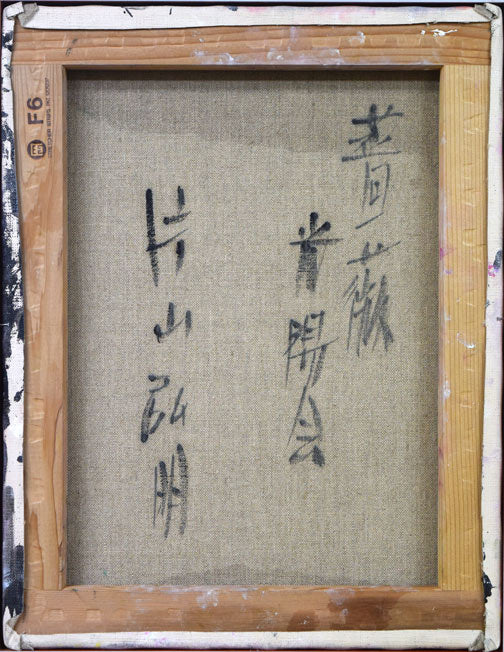 薔薇
光陽会
片山弘明
F6